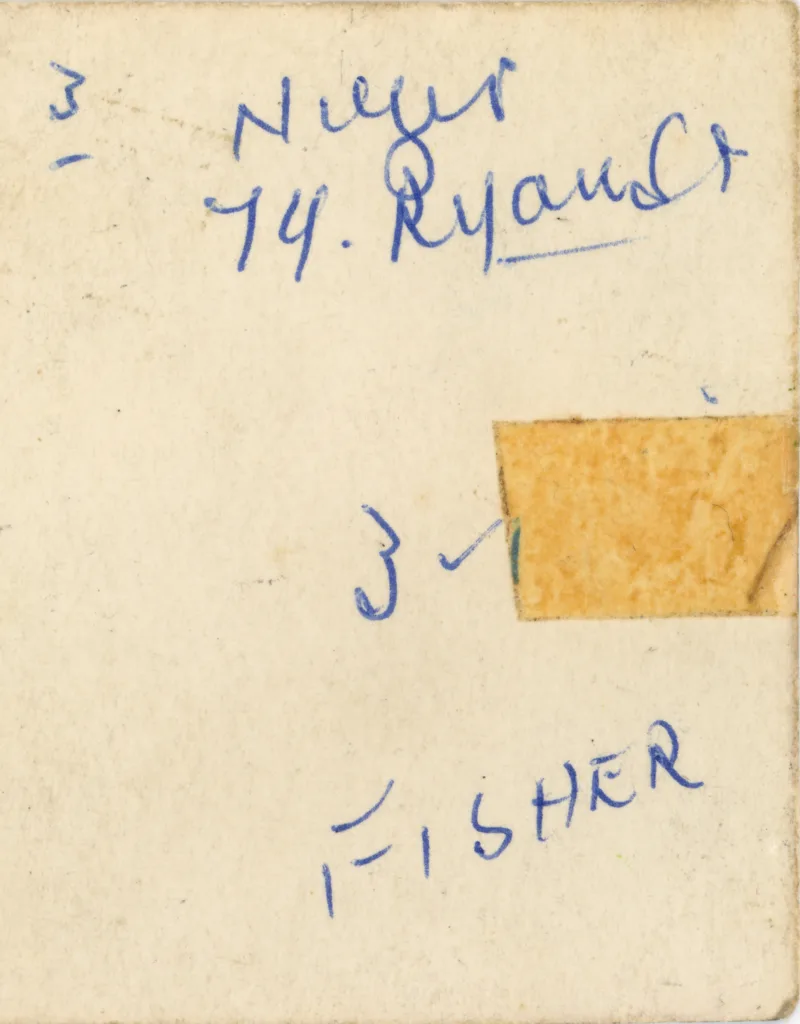 3
74. Ryan St
3 ✓
FISHER